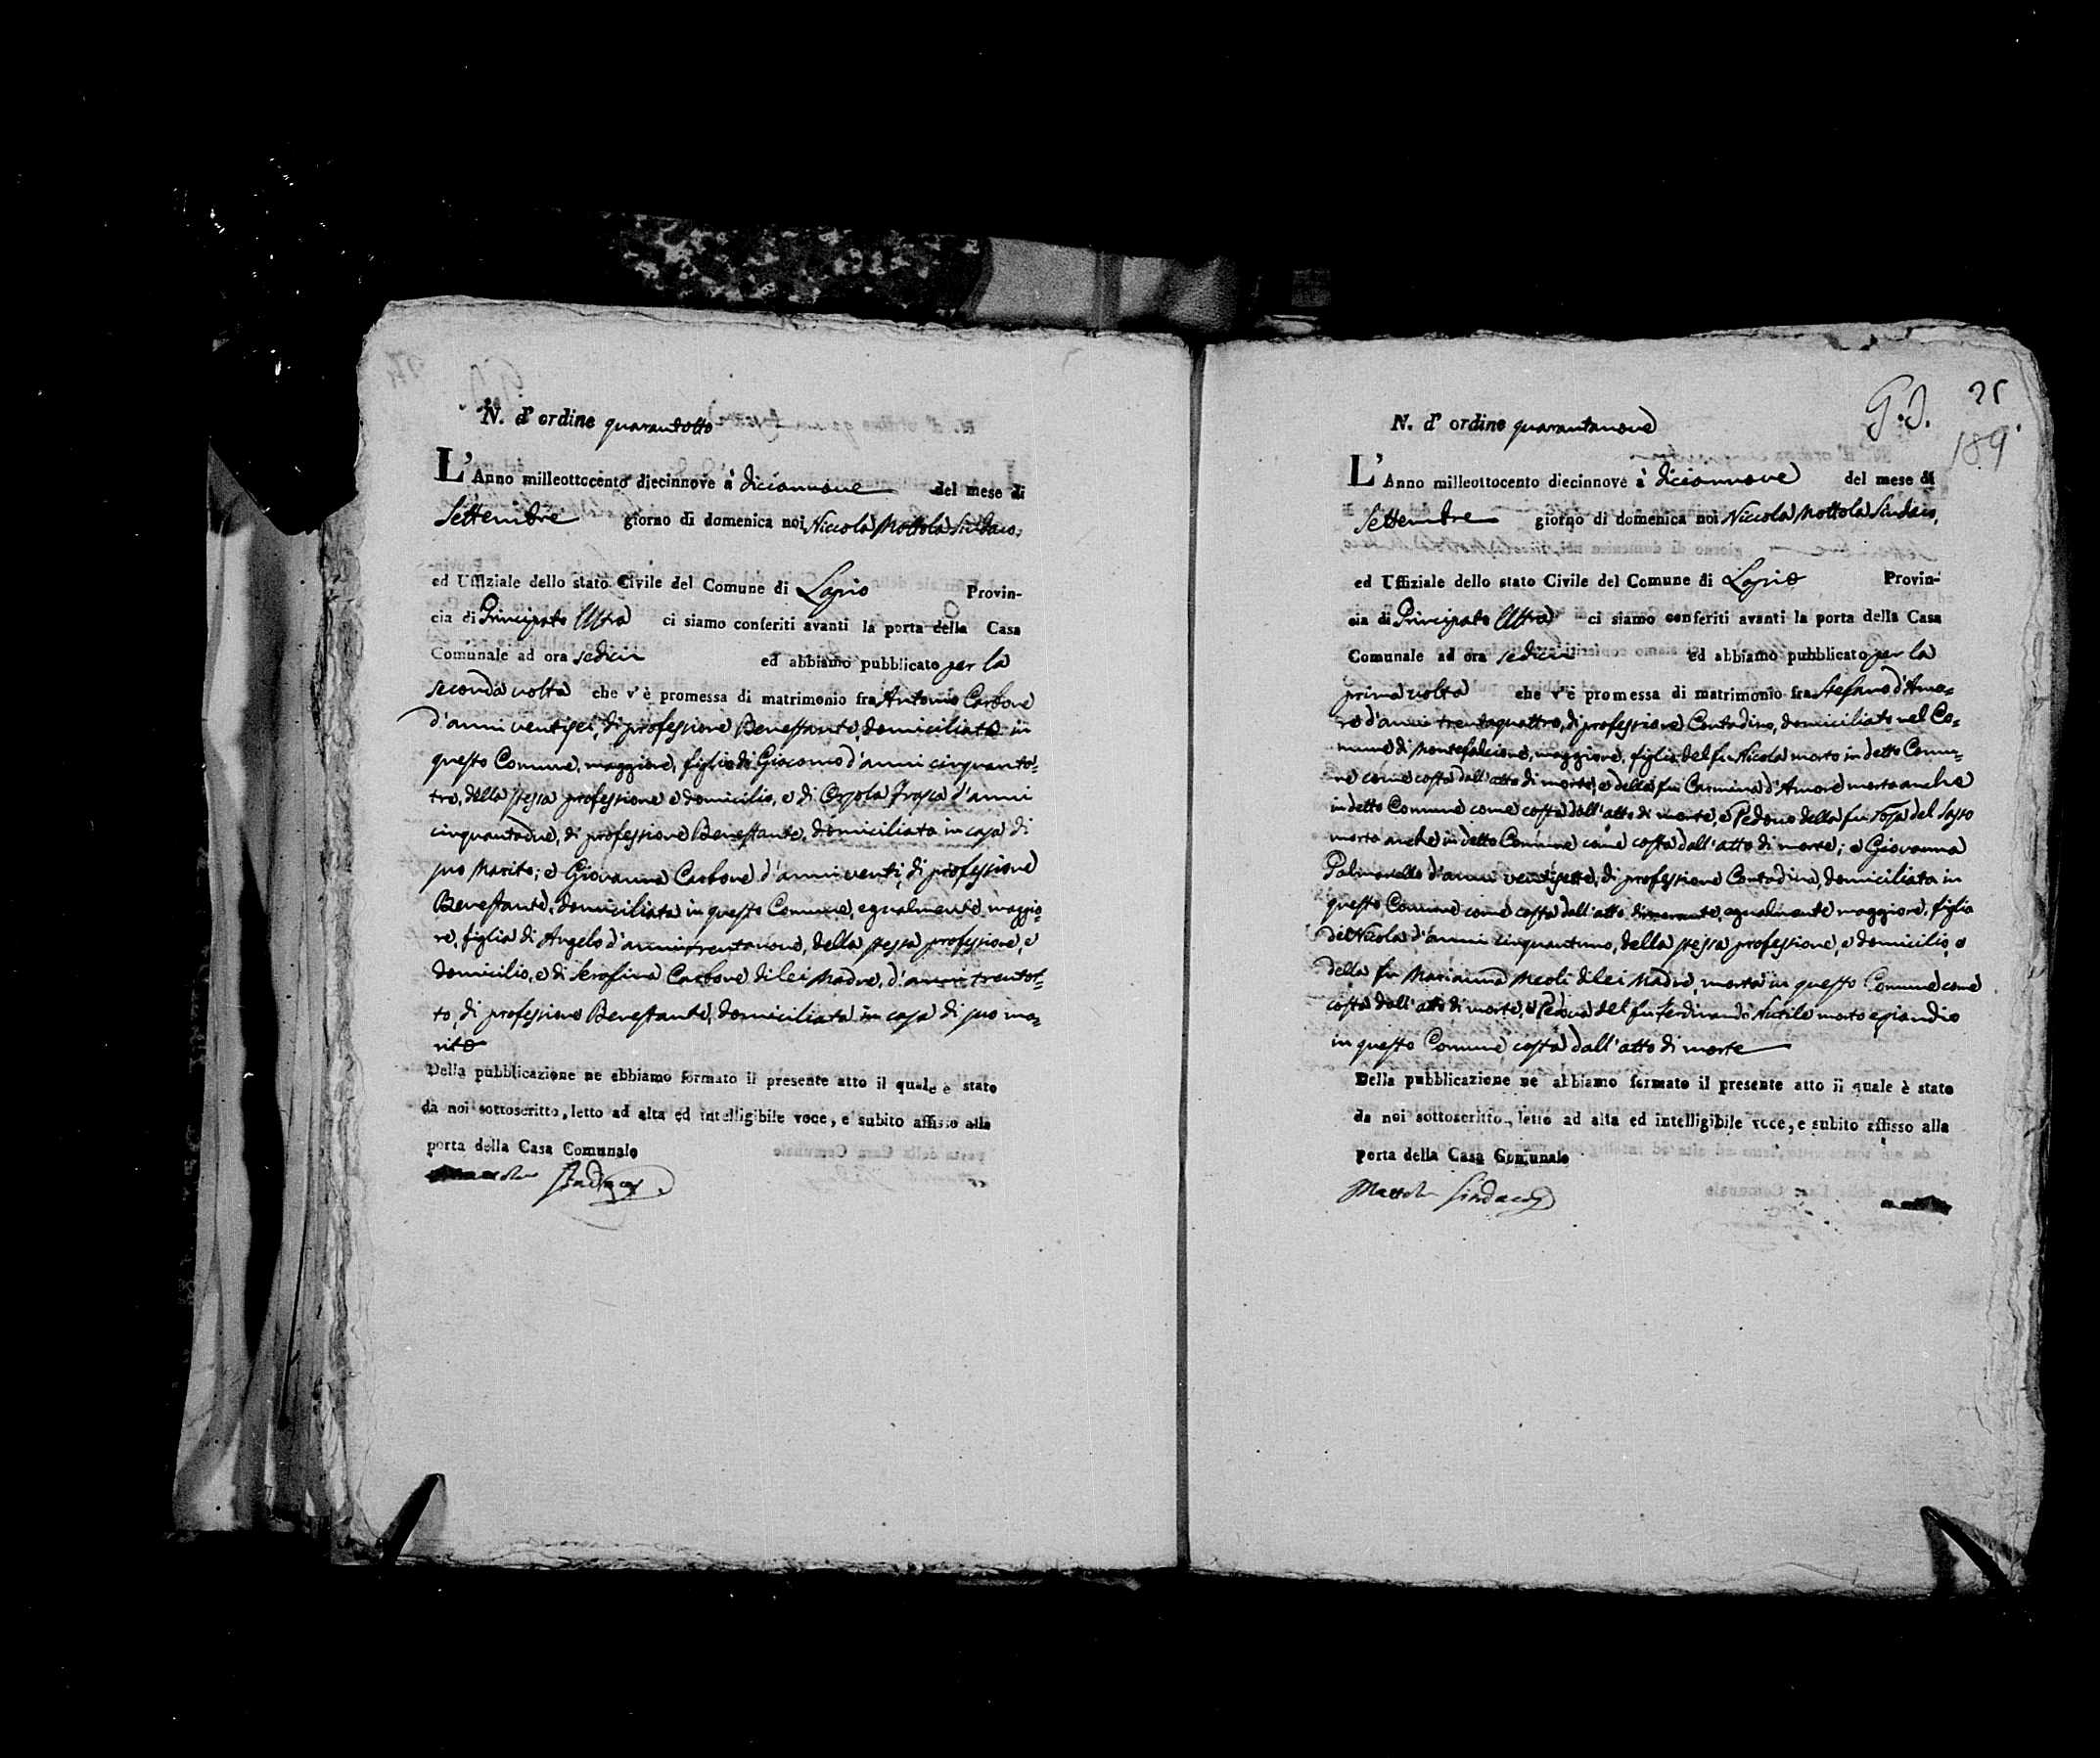 N. d' ordine quarantotto
L'Anno milleottocento diecinnove à diciannove del mese di
Settembre giorno di domenica noi Niccola Mottola Sindaco,
ed Uffiziale dello stato Civile del Comune di Lapio Provin-
cia di Principato Ultra ci siamo conferiti avanti la porta della Casa
Comunale ad ora sedici ed abbiamo pubblicato per la
seconda volta che v'è promessa di matrimonio fra Antonio Carbone
d'anni ventisei, di professione Benestante, domiciliato in
questo Comune, maggiore, figlio di Giacomo d'anni cinquanta-
tre, della stessa professione e domicilio, e di Orsola Trosca d'anni
cinquantadue, di professione Benestante, domiciliata in casa di
suo Marito; e Giovanna Carbone d'anni venti, di professione
Benestante, domiciliata in questo Comune, egualmente maggio-
re, figlia di Angelo d'anni trentanove, della stessa professione, e
domicilio, e di Serafina Carbone di lei Madre, d'anni trentot-
to, di professione Benestante, domiciliata in casa di suo ma-
rito
Della pubblicazione ne abbiamo formato il presente atto il quale è stato
da noi sottoscritto, letto ad alta ed intelligibile voce, e subito affisso alla
porta della Casa Comunale
Sindaco
G. J. 25
189
N. d' ordine quarantanove
L'Anno milleottocento diecinnove à diciannove del mese di
Settembre giorno di domenica noi Niccola Mottola Sindaco,
ed Uffiziale dello stato Civile del Comune di Lapio Provin-
cia di Principato Ultra ci siamo conferiti avanti la porta della Casa
Comunale ad ora sedici ed abbiamo pubblicato per la
prima volta che v'è promessa di matrimonio fra Stefano d'Amo-
re d'anni trentaquattro, di professione Contadino, domiciliato nel Co-
mune di Montefalcione, maggiore, figlio del fu Nicola morto in detto Comu-
ne come costa dall'atto di morte, e della fu Carmina d'Amore morta anche
in detto Comune come costa dall'atto di morte, e Vedovo della fu Rosa del Sasso
morta anche in detto Comune come costa dall'atto di morte; e Giovanna
Palmarello d'anni ventisette, di professione Contadina, domiciliata in
questo Comune come costa dall'atto egualmente maggiore, figlia
di Nicola d'anni cinquantuno, della stessa professione, e domicilio, e
della fu Marianna Meoli di lei Madre, morta in questo Comune come
costa dall'atto di morte, e Vedova del fu Ferdinando morto eziandio
in questo Comune costa dall'atto di morte
Della pubblicazione ne abbiamo formato il presente atto il quale è stato
da noi sottoscritto, letto ad alta ed intelligibile voce, e subito affisso alla
porta della Casa Comunale
Mottola Sindaco